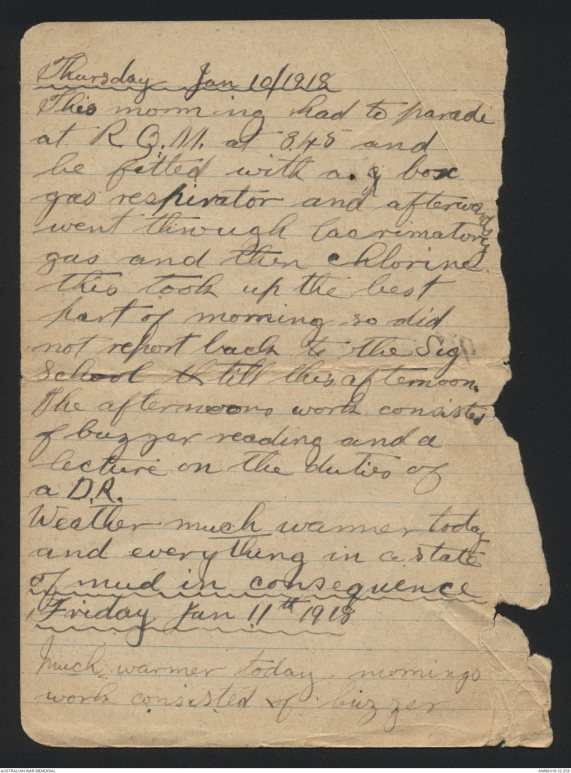 Thursday Jan 10/1918
This morning had to parade
at R.Q.M. at 845 and
be fitted with a.g box
gas respirator and afterwards
went through lacrimatory
gas and then chlorine.
this took up the best
part of morning so did
not report back to the Sig
School till this afternoon.
The afternoons work consisted
of buzzer reading and a
lecture on the duties of
a D.R.
Weather much warmer today
and everything in a state
of mud in consequence
Friday Jan 11th 1918
Much warmer today. mornings
work consisted of buzzer
AUSTRALIAN WAR MEMORIAL